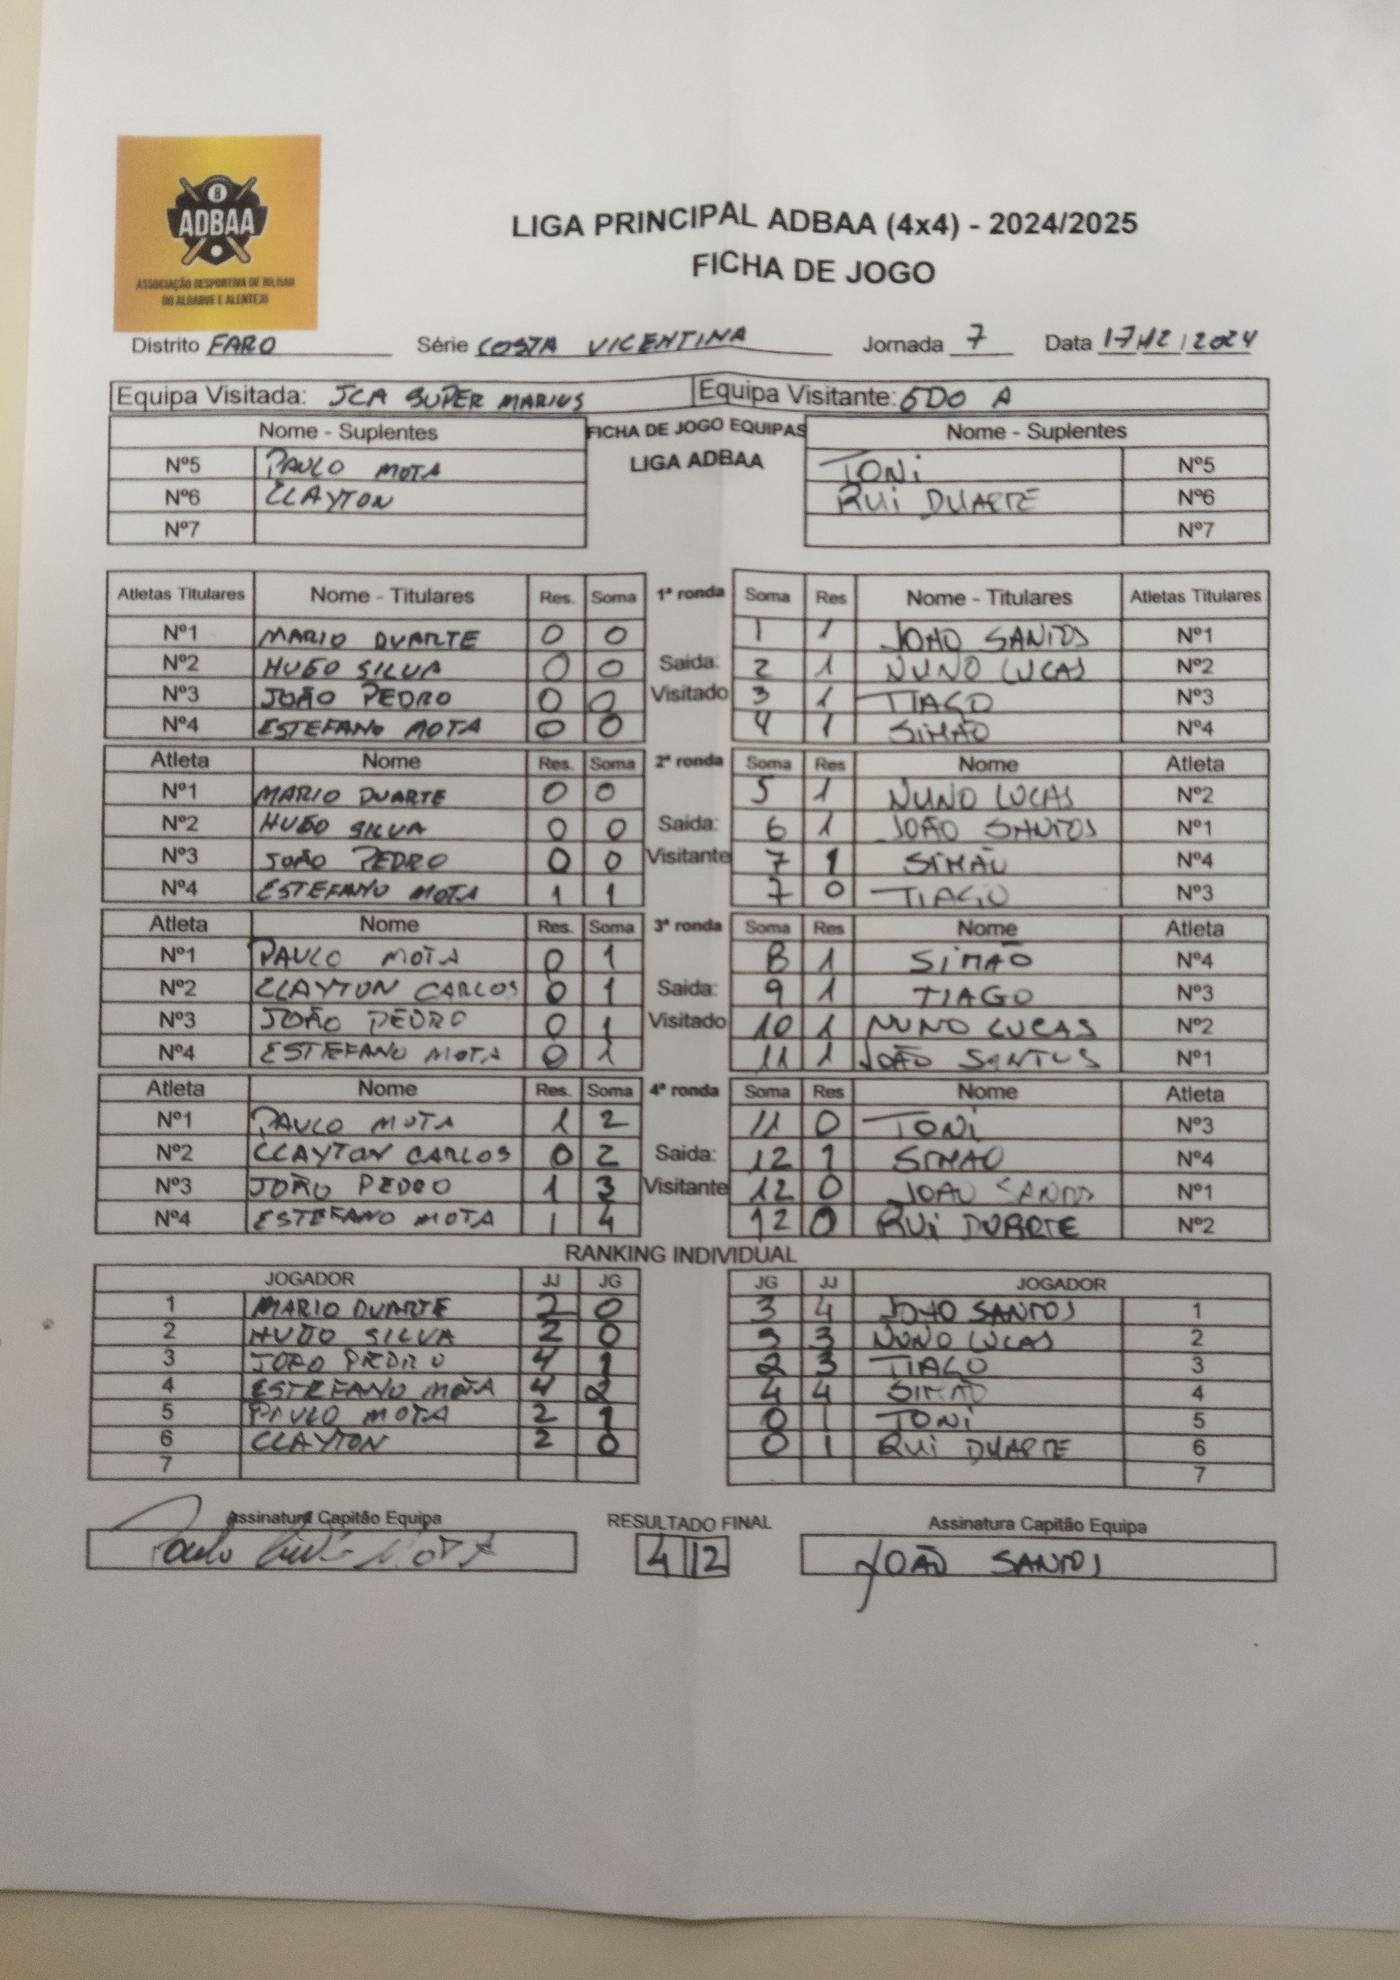 8
ADBAA
ASSOCIAÇÃO DESPORTIVA DE BILHAR
DO ALGARVE E ALENTEJO
LIGA PRINCIPAL ADBAA (4x4) - 2024/2025
FICHA DE JOGO
Distrito FARO Série COSTA VICENTINA Jornada 7 Data 17/12/2024
Equipa Visitada: JCA SUPER MARIUS Equipa Visitante: GDO A
Nome - Suplentes FICHA DE JOGO EQUIPAS Nome - Suplentes
LIGA ADBAA
Nº5 PAULO MOTA TONI Nº5
Nº6 CLAYTON RUI DUARTE Nº6
Nº7 Nº7
Atletas Titulares Nome - Titulares Res. Soma 1ª ronda Soma Res Nome - Titulares Atletas Titulares
Nº1 MARIO DUARTE 0 0 1 1 JOAO SANTOS Nº1
Nº2 HUGO SILVA 0 0 Saida: 2 1 NUNO LUCAS Nº2
Nº3 JOÃO PEDRO 0 0 Visitado 3 1 TIAGO Nº3
Nº4 ESTEFANO MOTA 0 0 4 1 SIMÃO Nº4
Atleta Nome Res. Soma 2ª ronda Soma Res Nome Atleta
Nº1 MARIO DUARTE 0 0 5 1 NUNO LUCAS Nº2
Nº2 HUGO SILVA 0 0 Saida: 6 1 JOÃO SANTOS Nº1
Nº3 JOÃO PEDRO 0 0 Visitante 7 1 SIMÃO Nº4
Nº4 ESTEFANO MOTA 1 1 7 0 TIAGO Nº3
Atleta Nome Res. Soma 3ª ronda Soma Res Nome Atleta
Nº1 PAULO MOTA 0 1 8 1 SIMÃO Nº4
Nº2 CLAYTON CARLOS 0 1 Saida: 9 1 TIAGO Nº3
Nº3 JOÃO PEDRO 0 1 Visitado 10 1 NUNO LUCAS Nº2
Nº4 ESTEFANO MOTA 0 1 11 1 JOÃO SANTOS Nº1
Atleta Nome Res. Soma 4ª ronda Soma Res Nome Atleta
Nº1 PAULO MOTA 1 2 11 0 TONI Nº3
Nº2 CLAYTON CARLOS 0 2 Saida: 12 1 SIMAO Nº4
Nº3 JOÃO PEDRO 1 3 Visitante 12 0 JOAO SANTOS Nº1
Nº4 ESTEFANO MOTA 1 4 12 0 RUI DUARTE Nº2
RANKING INDIVIDUAL
JOGADOR JJ JG JG JJ JOGADOR
1 MARIO DUARTE 2 0 3 4 JOAO SANTOS 1
2 HUGO SILVA 2 0 3 3 NUNO LUCAS 2
3 JOÃO PEDRO 4 1 2 3 TIAGO 3
4 ESTEFANO MOTA 4 2 4 4 SIMÃO 4
5 PAULO MOTA 2 1 0 1 TONI 5
6 CLAYTON 2 0 0 1 RUI DUARTE 6
7 7
Assinatura Capitão Equipa RESULTADO FINAL Assinatura Capitão Equipa
Paulo MOTA 4 12 JOÃO SANTOS